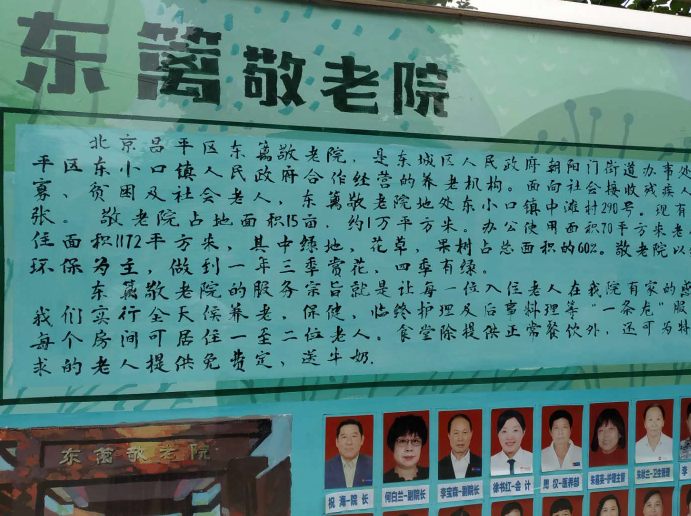 东篱敬老院
北京昌平区东篱敬老院，是东城区人民政府朝阳门街道办事处
平区东小口镇人民政府合作经营的养老机构。面向社会接收残疾人
寡、贫困及社会老人，东篱敬老院地处东小口镇中滩村290号。现有
张。敬老院占地面积15亩，约1万平方米。办公使用面积70平方米老
住面积1172平方米，其中绿地，花草，果树占总面积的60%。敬老院以
环保为主，做到一年三季赏花，四季有绿。
东篱敬老院的服务宗旨就是让每一位入住老人在我院有家的感
我们实行全天候养老，保健，临终护理及后事料理等“一条龙”服
每个房间可居住一至二位老人。食堂除提供正常餐饮外，还可为特
求的老人提供免费定，送牛奶.
东篱敬老院
祝海-院长
何白兰-副院长
李宝森-副院长
徐书红-会计
医养部
护理主管
卫生管理
李